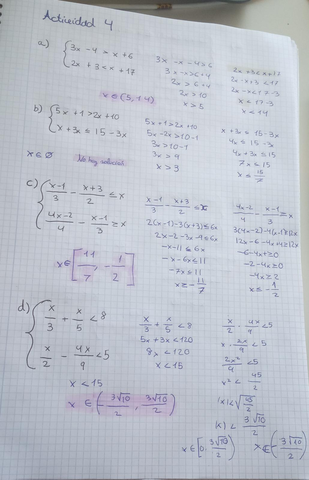 Actividad 4
a) { 3x - 4 > x + 6
2x + 3 < x + 17
3x - x > 6 + 4
2x > 10
x > 5
x < 17 - 3
x < 14
x ∈ (5, 14)
b) { 5x + 1 > 2x + 10
x + 3x ≤ 15 - 3x
5x + 1 > 2x + 10
5x - 2x > 10 - 1
3x > 10 - 1
3x > 9
x > 3
x + 3x ≤ 15 - 3x
4x ≤ 15 - 3x
4x + 3x ≤ 15
7x ≤ 15
x ≤ 15/7
x ∈ ∅
No hay solución
c) { (x-1)/3 - (x+3)/2 ≤ x
(4x-2)/4 - (x-1)/3 ≥ x
(x-1)/3 - (x+3)/2 ≤ x
2(x-1) - 3(x+3) ≤ 6x
2x - 2 - 3x - 9 ≤ 6x
-x - 11 ≤ 6x
-x - 6x ≤ 11
-7x ≤ 11
x ≥ -11/7
-2 - 4x ≥ 0
-4x ≥ 2
x ≤ -1/2
x ∈ [-11/7, -1/2]
d) { x/3 + x/5 < 8
x/2 - 4x/9 < 5
x/3 + x/5 < 8
5x + 3x < 120
8x < 120
x < 15
x/2 · 4x/9 < 5
x · 2x/9 < 5
2x²/9 < 5
x² < 45/2
|x| < √(45/2)
|x| < 3√10/2
x < 15
x ∈ (-3√10/2, 3√10/2)
x ∈ [0, 3√10/2)